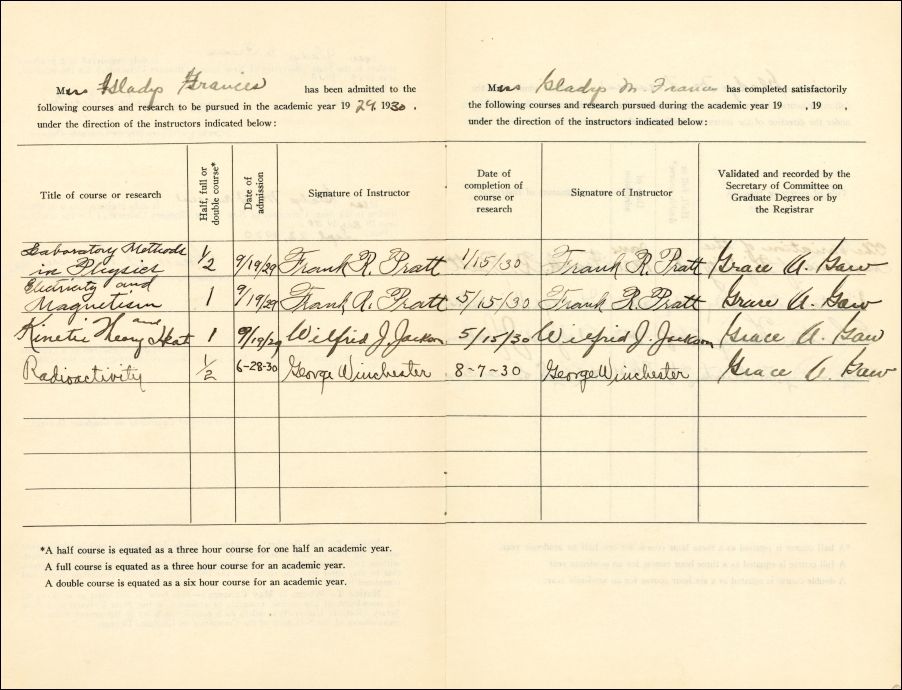 Miss Gladys Francis has been admitted to the
following courses and research to be pursued in the academic year 1929, 1930,
under the direction of the instructors indicated below:
Title of course or research
Half, full or double course*
Date of admission
Signature of Instructor
Laboratory Methods in Physics 1/2 9/19/29 Frank R. Pratt
Electricity and Magnetism 1 9/19/29 Frank R. Pratt
Kinetic Theory and Heat 1 9/19/29 Wilfred J. Jackson
Radioactivity 1/2 6-28-30 George Winchester
*A half course is equated as a three hour course for one half an academic year.
A full course is equated as a three hour course for an academic year.
A double course is equated as a six hour course for an academic year.
Miss Gladys M. Francis has completed satisfactorily
the following courses and research pursued during the academic year 19 , 19 ,
under the direction of the instructors indicated below:
Date of completion of course or research
Signature of Instructor
Validated and recorded by the Secretary of Committee on Graduate Degrees or by the Registrar
1/15/30 Frank R. Pratt Grace A. Gaw
5/15/30 Frank R. Pratt Grace A. Gaw
5/15/30 Wilfred J. Jackson Grace A. Gaw
8-7-30 George Winchester Grace A. Gaw